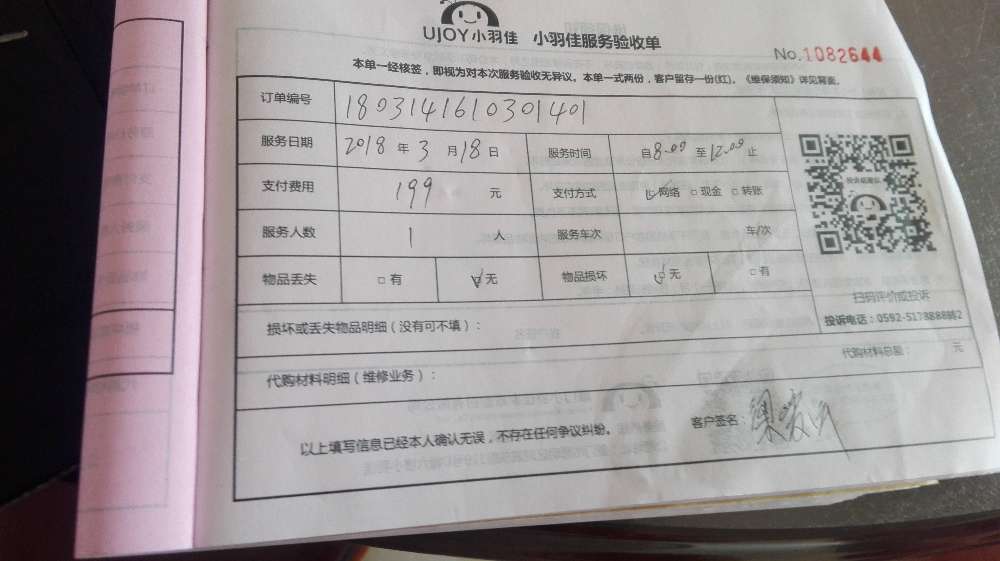 UJOY小羽佳 小羽佳服务验收单
No.1082644
本单一经核签，即视为对本次服务验收无异议。本单一式两份，客户留存一份(红)。《维保须知》详见背面。
订单编号 1803141610301401
服务日期 2018 年 3 月 18 日 服务时间 自8:00 至12:00止
支付费用 199 元 支付方式 ☑网络 □现金 □转账
服务人数 1 人 服务车次 车/次
物品丢失 □有 ☑无 物品损坏 ☑无 □有
扫码评价或投诉
损坏或丢失物品明细（没有可不填）：
投诉电话：0592-5178888转2
代购材料明细（维修业务）：
代购材料总额： 元
以上填写信息已经本人确认无误，不存在任何争议纠纷。
客户签名：